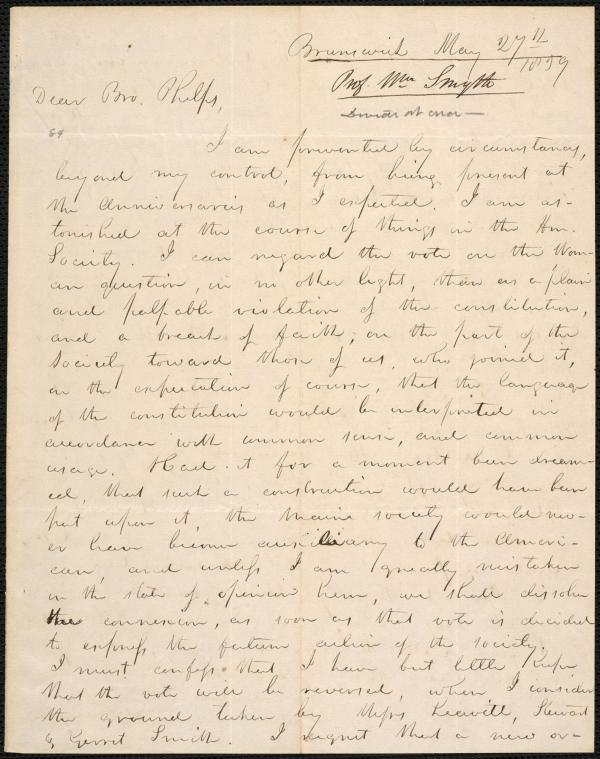 Brunswick May 27th
1839
Prof. Wm Smyth
Dear Bro. Phelps,
I am prevented by circumstances,
beyond my control, from being present at
the Anniversaries as I expected. I am as-
tonished at the course of things in the Am.
Society. I can regard the vote on the Wom-
an question, in no other light, than as a plain
and palpable violation of the constitution,
and a breach of faith, on the part of the
Society toward those of us, who joined it,
in the expectation of course, that the language
of the constitution would be interpreted in
accordance with common sense, and common
usage. Had it for a moment been dream-
ed, that such a construction would have been
put upon it, the Maine society would nev-
er have become auxiliary to the Ameri-
can, and unless I am greatly mistaken
in the state of opinion here, we shall dissolve
the connexion, as soon as that vote is decided
to express the future action of the society.
I must confess that I have but little hope
that the vote will be reversed, when I consider
the ground taken by Messrs Leavitt, Stewart
& Gerrit Smith. I regret that a new or-